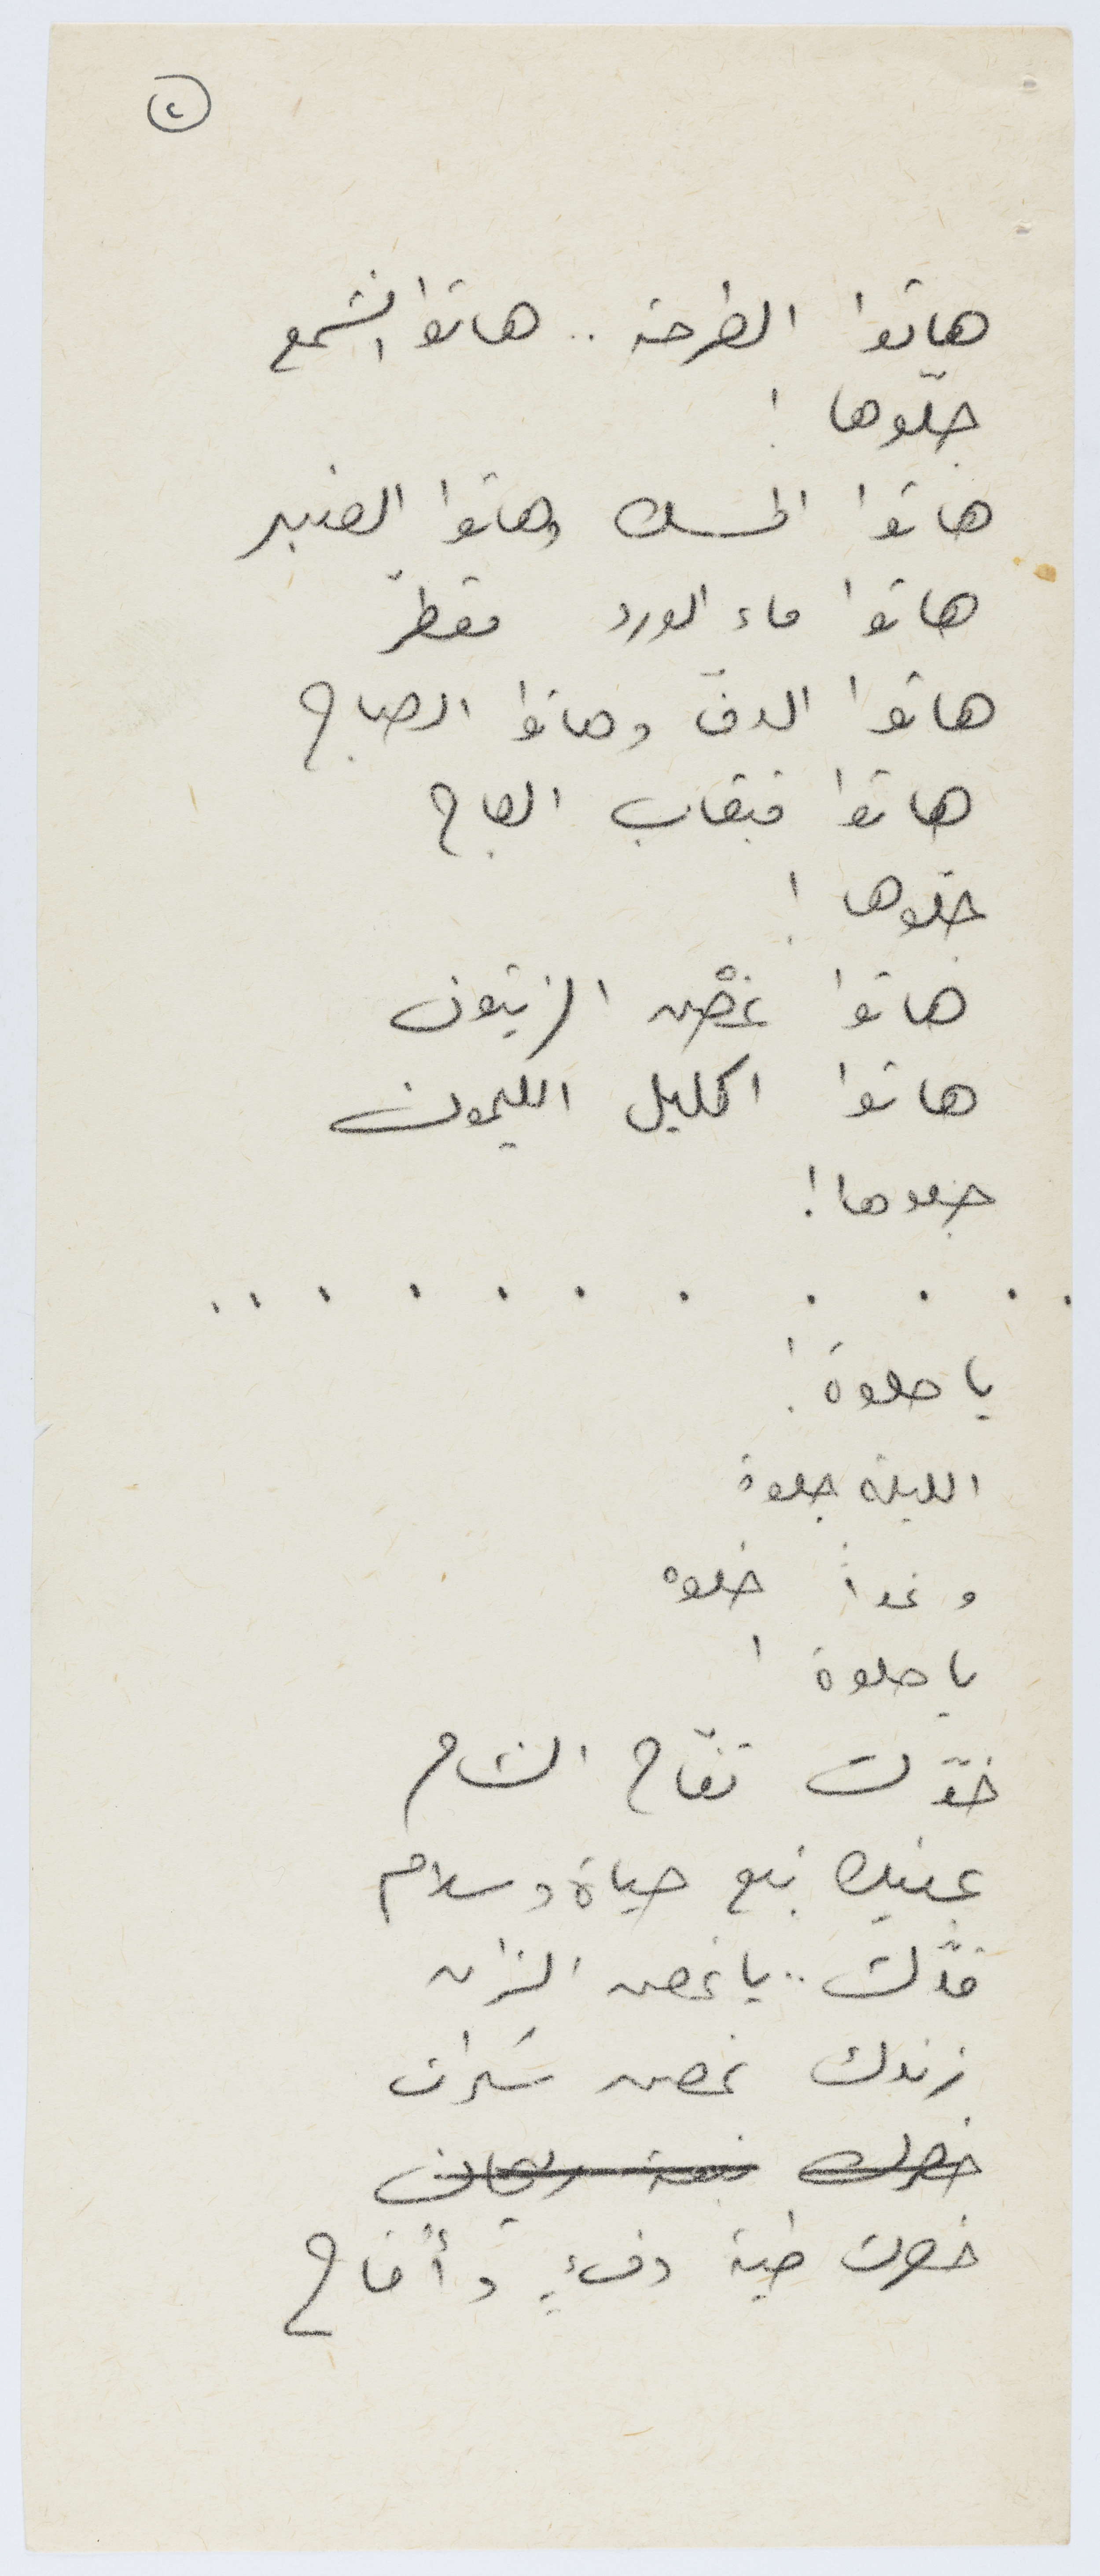 ٢
هاتوا الطرحة .. هاتوا الشمع
جلّوها !
هاتوا المسك وهاتوا العنبر
هاتوا ماء الورد مقطّر
هاتوا الدفّ وهاتوا الصاج
هاتوا قبقاب العاج
جلّوها !
هاتوا غصْن الزيتون
هاتوا اكليل الليمون
جلوها !
. . . . . . . . . . .
يا حلوة !
الليلة جلوة
وغداً خلوه
يا حلوة !
خدّك تفّاح الشام
عينيك نبع حياة وسلام
قدّك .. يا غصن الزان
زندك غصن
خصرك ريحان
خصرك طية دفءٍ وأقاح